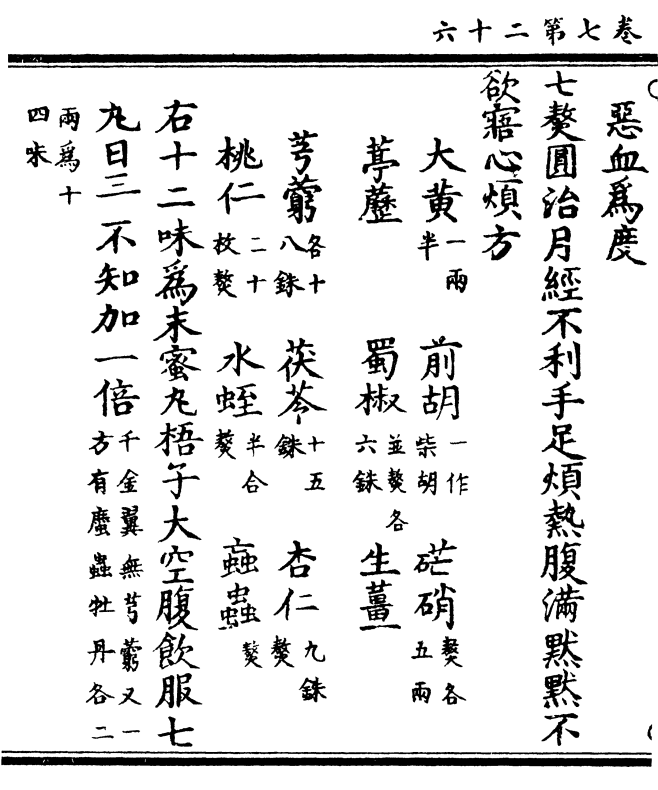 卷七第二十六
惡血爲度
七熬圓治月經不利手足煩熱腹滿默默不
欲寤心煩方
大黄一兩半 前胡一作柴胡 硭硝熬各五兩
葶藶 蜀椒並熬各六銖 生薑
芎藭各十八銖 茯苓十五銖 杏仁九銖熬
桃仁二十枚熬 水蛭半合熬 蝱蟲熬
右十二味爲末蜜丸梧子大空腹飲服七
丸日三不知加一倍千金翼無芎藭又一方有䗪蟲牡丹各二
兩爲十四味